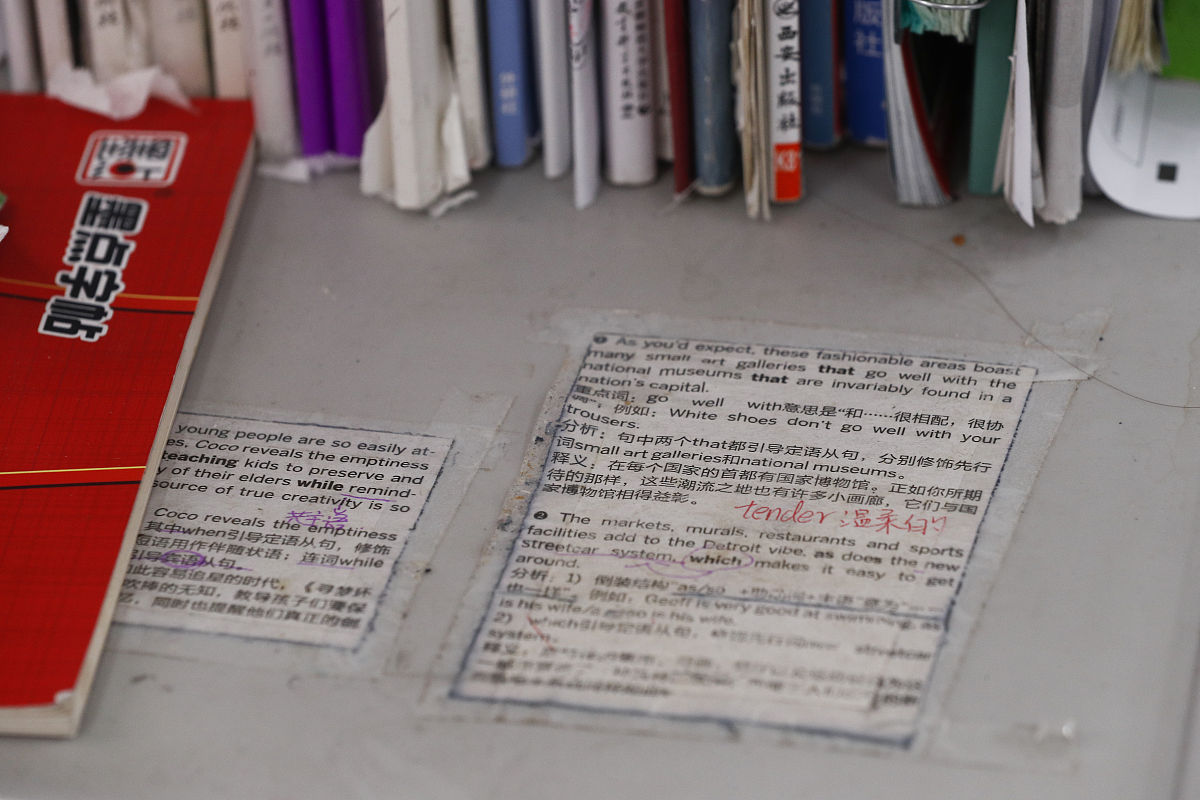 墨点字帖
西安出版社
版社
young people are so easily at-
es, Coco reveals the emptiness
teaching kids to preserve and
y of their elders while remind-
source of true creativity is so
Coco reveals the emptiness
其中when引导定语从句，修饰
短语用作伴随状语；连词while
引导宾语从句。
如此容易追星的时代，《寻梦环
吹捧的无知，教导孩子们要保
忆，同时也提醒他们真正的创
❶ As you'd expect, these fashionable areas boast
many small art galleries that go well with the
national museums that are invariably found in a
nation's capital.
重点词：go well with意思是“和……很相配，很协
调”，例如：White shoes don't go well with your
trousers.
分析：句中两个that都引导定语从句，分别修饰先行
词small art galleries和national museums。
释义：在每个国家的首都有国家博物馆。正如你所期
待的那样，这些潮流之地也有许多小画廊，它们与国
家博物馆相得益彰。
tender 温柔的
❷ The markets, murals, restaurants and sports
facilities add to the Detroit vibe, as does the new
streetcar system, which makes it easy to get
around.
分析：1）倒装结构“as/so +助动词+主语”意为“……
也一样”，例如：Geoff is very good at swimming, as
is his wife/ so is his wife.
2）which引导定语从句，修饰先行词 streetcar
system.
释义：